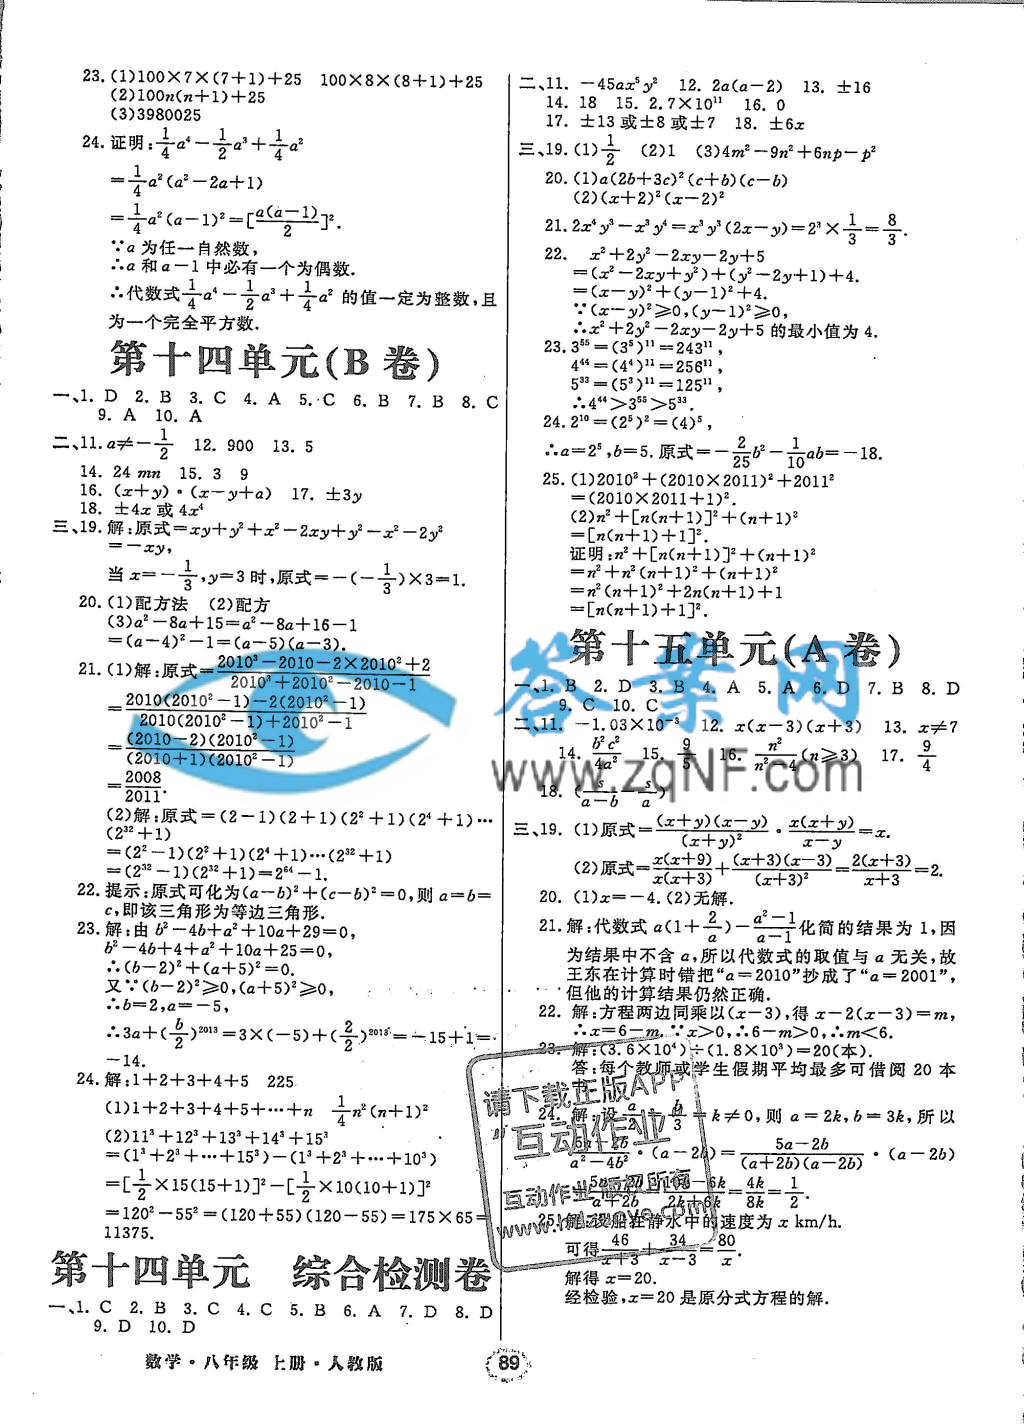 23. (1)100×7×(7+1)+25   100×8×(8+1)+25
(2)100n(n+1)+25
(3)3980025
24. 证明:1/4a⁴-1/2a³+1/4a²
=1/4a²(a²-2a+1)
=1/4a²(a-1)²=[a(a-1)/2]².
∵a 为任一自然数,
∴a 和 a-1 中必有一个为偶数.
∴代数式1/4a⁴-1/2a³+1/4a² 的值一定为整数,且
为一个完全平方数.
第十四单元(B 卷)
一、1. D  2. B  3. C  4. A  5. C  6. B  7. B  8. C
9. A  10. A
二、11. a≠-1/2  12. 900  13. 5
14. 24 mn  15. 3  9
16. (x+y)·(x-y+a)  17. ±3y
18. ±4x 或 4x⁴
三、19. 解:原式=xy+y²+x²-2xy+y²-x²-2y²
=-xy,
当 x=-1/3,y=3 时,原式=-(-1/3)×3=1.
20. (1)配方法  (2)配方
(3)a²-8a+15=a²-8a+16-1
=(a-4)²-1=(a-5)(a-3).
21. (1)解:原式=(2010³-2010-2×2010²+2)/(2010³+2010²-2010-1)
=(2010(2010²-1)-2(2010²-1))/(2010(2010²-1)+2010²-1)
=((2010-2)(2010²-1))/((2010+1)(2010²-1))
=2008/2011.
(2)解:原式=(2-1)(2+1)(2²+1)(2⁴+1)…
(2³²+1)
=(2²-1)(2²+1)(2⁴+1)…(2³²+1)
=(2³²-1)(2³²+1)=2⁶⁴-1.
22. 提示:原式可化为(a-b)²+(c-b)²=0,则 a=b=
c,即该三角形为等边三角形.
23. 解:由 b²-4b+a²+10a+29=0,
b²-4b+4+a²+10a+25=0,
∴(b-2)²+(a+5)²=0.
又∵(b-2)²≥0,(a+5)²≥0,
∴b=2,a=-5,
∴3a+(b/2)²⁰¹³=3×(-5)+(2/2)²⁰¹³=-15+1=
-14.
24. 解:1+2+3+4+5  225
(1)1+2+3+4+5+…+n  1/4n²(n+1)²
(2)11³+12³+13³+14³+15³
=(1³+2³+…+15³)-(1³+2³+…+10³)
=[1/2×15(15+1)]²-[1/2×10(10+1)]²
=120²-55²=(120+55)(120-55)=175×65=
11375.
第十四单元  综合检测卷
一、1. C  2. B  3. C  4. C  5. B  6. A  7. D  8. D
9. D  10. D
二、11. -45ax⁵y²  12. 2a(a-2)  13. ±16
14. 18  15. 2.7×10¹¹  16. 0
17. ±13 或±8 或±7  18. ±6x
三、19. (1)1/2  (2)1  (3)4m²-9n²+6np-p²
20. (1)a(2b+3c)²(c+b)(c-b)
(2)(x+2)²(x-2)²
21. 2x⁴y³-x³y⁴=x³y³(2x-y)=2³×1/3=8/3.
22.  x²+2y²-2xy-2y+5
=(x²-2xy+y²)+(y²-2y+1)+4.
=(x-y)²+(y-1)²+4.
∵(x-y)²≥0,(y-1)²≥0,
∴x²+2y²-2xy-2y+5 的最小值为 4.
23. 3⁵⁵=(3⁵)¹¹=243¹¹,
4⁴⁴=(4⁴)¹¹=256¹¹,
5³³=(5³)¹¹=125¹¹,
∴4⁴⁴>3⁵⁵>5³³.
24. 2¹⁰=(2⁵)²=(4)⁵,
∴a=2⁵,b=5. 原式=-2/25b²-1/10ab=-18.
25. (1)2010²+(2010×2011)²+2011²
=(2010×2011+1)².
(2)n²+[n(n+1)]²+(n+1)²
=[n(n+1)+1]².
证明:n²+[n(n+1)]²+(n+1)²
=n²+n²(n+1)²+(n+1)²
=n²(n+1)²+2n(n+1)+1
=[n(n+1)+1]².
第十五单元(A 卷)
一、1. B  2. D  3. B  4. A  5. A  6. D  7. B  8. D
9. C  10. C
二、11. -1.03×10⁻³  12. x(x-3)(x+3)  13. x≠7
14. b²c²/4a²  15. 9/5  16. n²/(n²-4)(n≥3)  17. 9/4
18. (s/(a-b)-s/a)
三、19. (1)原式=((x+y)(x-y))/(x+y)²·(x(x+y))/(x-y)=x.
(2)原式=(x(x+9))/(x(x+3))+((x+3)(x-3))/(x+3)=(2(x+3))/(x+3)=2.
20. (1)x=-4. (2)无解.
21. 解:代数式 a(1+2/a)-(a²-1)/(a-1)化简的结果为 1,因
为结果中不含 a,所以代数式的取值与 a 无关,故
王东在计算时错把“a=2010”抄成了“a=2001”,
但他的计算结果仍然正确.
22. 解:方程两边同乘以(x-3),得 x-2(x-3)=m,
∴x=6-m. ∵x>0,∴6-m>0,∴m<6.
23. 解:(3.6×10⁴)÷(1.8×10³)=20(本).
答:每个教师或学生假期平均最多可借阅 20 本
书.
24. 解:设a/2=b/3=k≠0,则 a=2k,b=3k,所以
(5a-2b)/(a²-4b²)·(a-2b)=(5a-2b)/((a+2b)(a-2b))·(a-2b)
=(5a-2b)/(a+2b)=(10k-6k)/(2k+6k)=4k/8k=1/2.
25. 解:设船在静水中的速度为 x km/h.
可得46/(x+3)+34/(x-3)=80/x.
解得 x=20.
经检验,x=20 是原分式方程的解.
答案网
www.zqNF.com
请下载正版APP
互动作业
互动作业版权所有
数学·八年级 上册·人教版
89